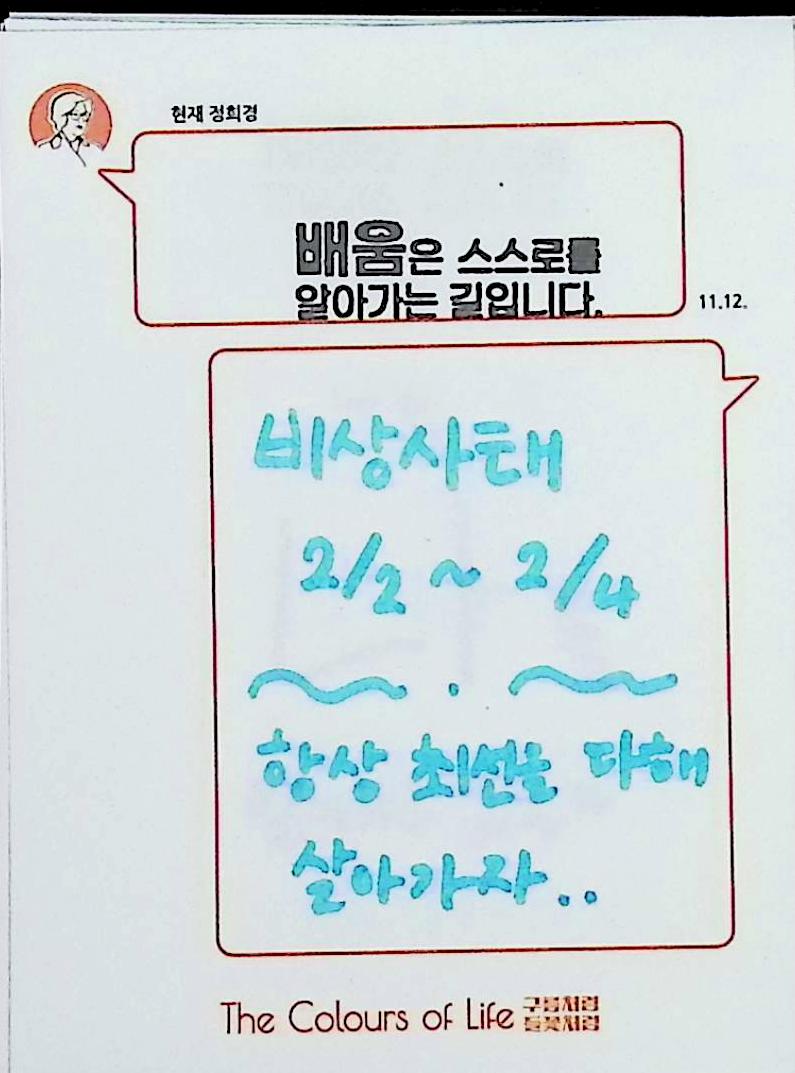 현재 정희경
배움은 스스로를
알아가는 길입니다.
11.12.
비상사태
2/2 ~ 2/4
~ . ~
항상 최선을 다해
살아가자..
The Colours of Life 구름처럼
들꽃처럼